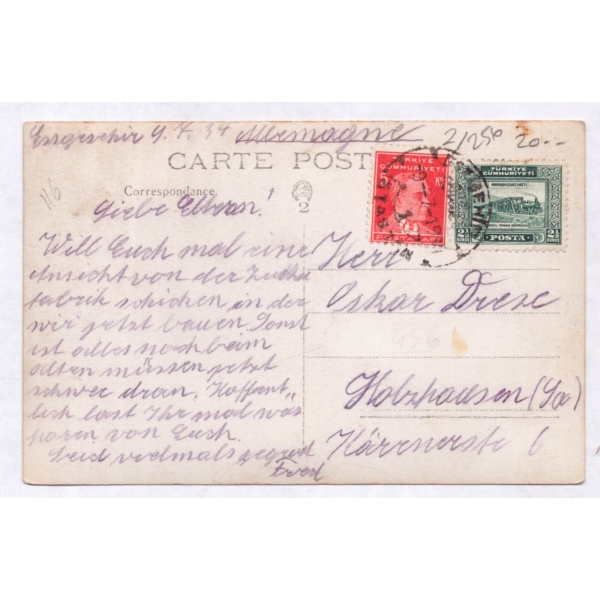 Essgeschir 9. V. 34 Allemagne 2/256 20.--
CARTE POSTALE
116
Correspondance.
2
Liebe Eltern!
Will Euch mal eine
Ansicht von der Zucker
fabrik schicken in der
wir jetzt bauen. Sonst
ist alles noch beim
alten müssen jetzt
schwer dran. Hoffent„
lich last Ihr mal was
hören von Euch.
Seid vielmals gegrüst
Fred
TÜRKİYE
CÜMHURİYETİ
TÜRKİYE
CÜMHURİYETİ
POSTA
Herr
Oskar Drese
Holzhausen (Sa)
Kärenerstr 6